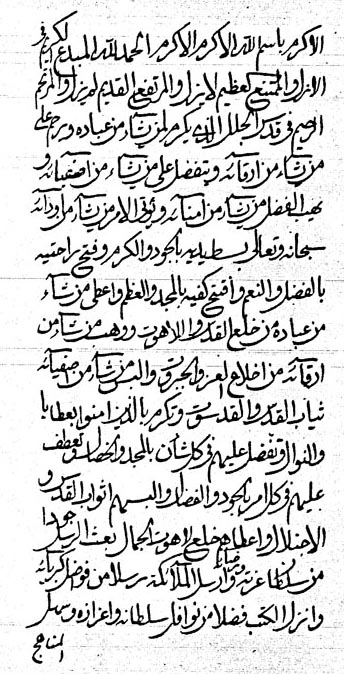 الاكرم باسم الله الاكرم الاكرم الحمد لله المبدع الكريم في
الازل والممتنع العظيم لا يزال والمرتفع القديم لم يزل والمرحم
الرحيم في قدس الجلال الذي يكرم لمن يشاء من عباده ويرحم على
من يشاء من ارقائه ويتفضل على من يشاء من اصفيائه و
يهب الفضل من يشاء من امنائه ويؤتي الامر من يشاء من اودائه
سبحانه وتعالى بسط يديه بالجود والكرم وفتح راحتيه
بالفضل والنعم وافتح كفيه بالمجد والعظم واعطى من يشاء
من عباده من خلع القدس واللاهوت ووهب من يشاء من
ارقائه من اخلاع العز والجبروت والبس من يشاء من اصفيائه
ثياب القدس والقدسوت وتكرم بالذين امنوا بعطايا
والنوال وتفضل عليهم في كل شان بالمجد والخصال وتعطف
عليهم في كل امر بالجود والفضال والبسهم اثواب القدس و
الاجلال واعطاهم خلع لاهوت الجمال بعث الرسل جودا
من سلطان عزته وارسل الملآئكة رسلا من فوضل كبريائه
وانزل الكتب فضلا من نوافل سلطانه واعزازه وسهل
المناهج